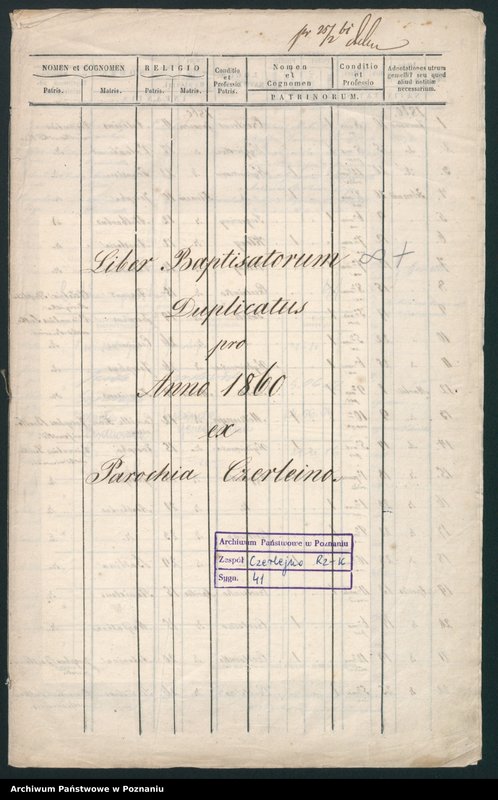 pr 25/2 61
NOMEN et COGNOMEN
Patris.
Matris.
RELIGIO
Patris.
Matris.
Conditio
et
Professio
Patris.
Nomen
et
Cognomen
Conditio
et
Professio
PATRINORUM.
Adnotationes utrum
gemelli? seu quod
aliud notitiæ
necessarium.
Liber Baptisatorum
Duplicatus
pro
Anno 1860
ex
Parochia Czerleino.
Archiwum Państwowe w Poznaniu
Zespół Czerlejno Rz-K
Sygn. 41
Archiwum Państwowe w Poznaniu